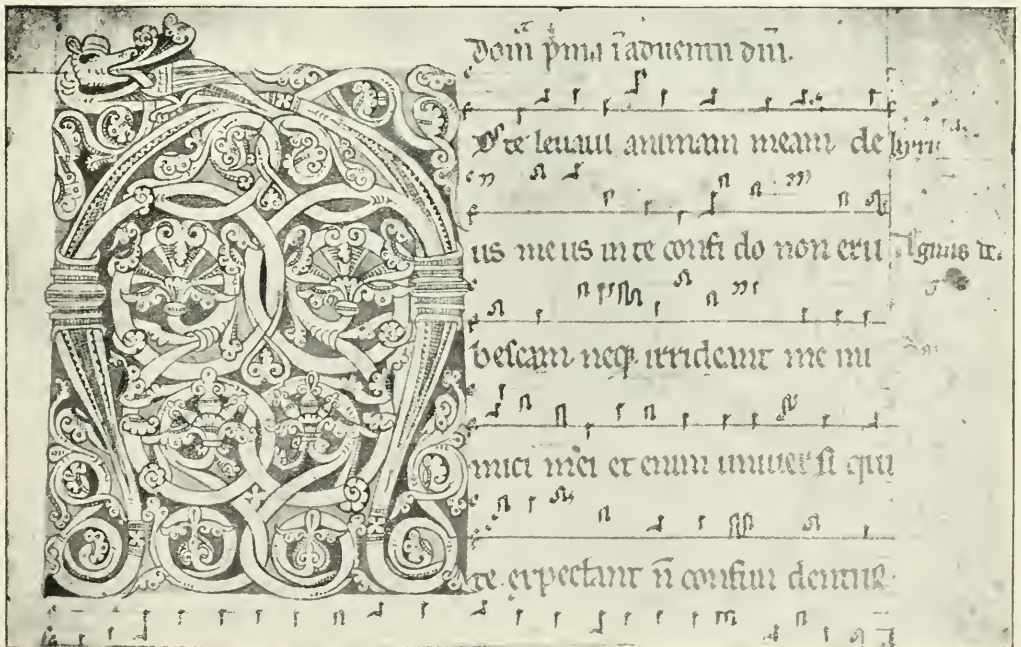 Dom̄ p̄ma ī aduentu dñi.
D te leuaui animam meam de
us meus in te confi do non eru
bescam neq; irrideant me ini
mici mei et enim uniuer si qui
te expectant n̄ confun dentur
Agnus de.